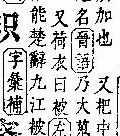 加也 又把中
名晉語乃大
又荷衣曰被左
能楚辭九江被
字彙補